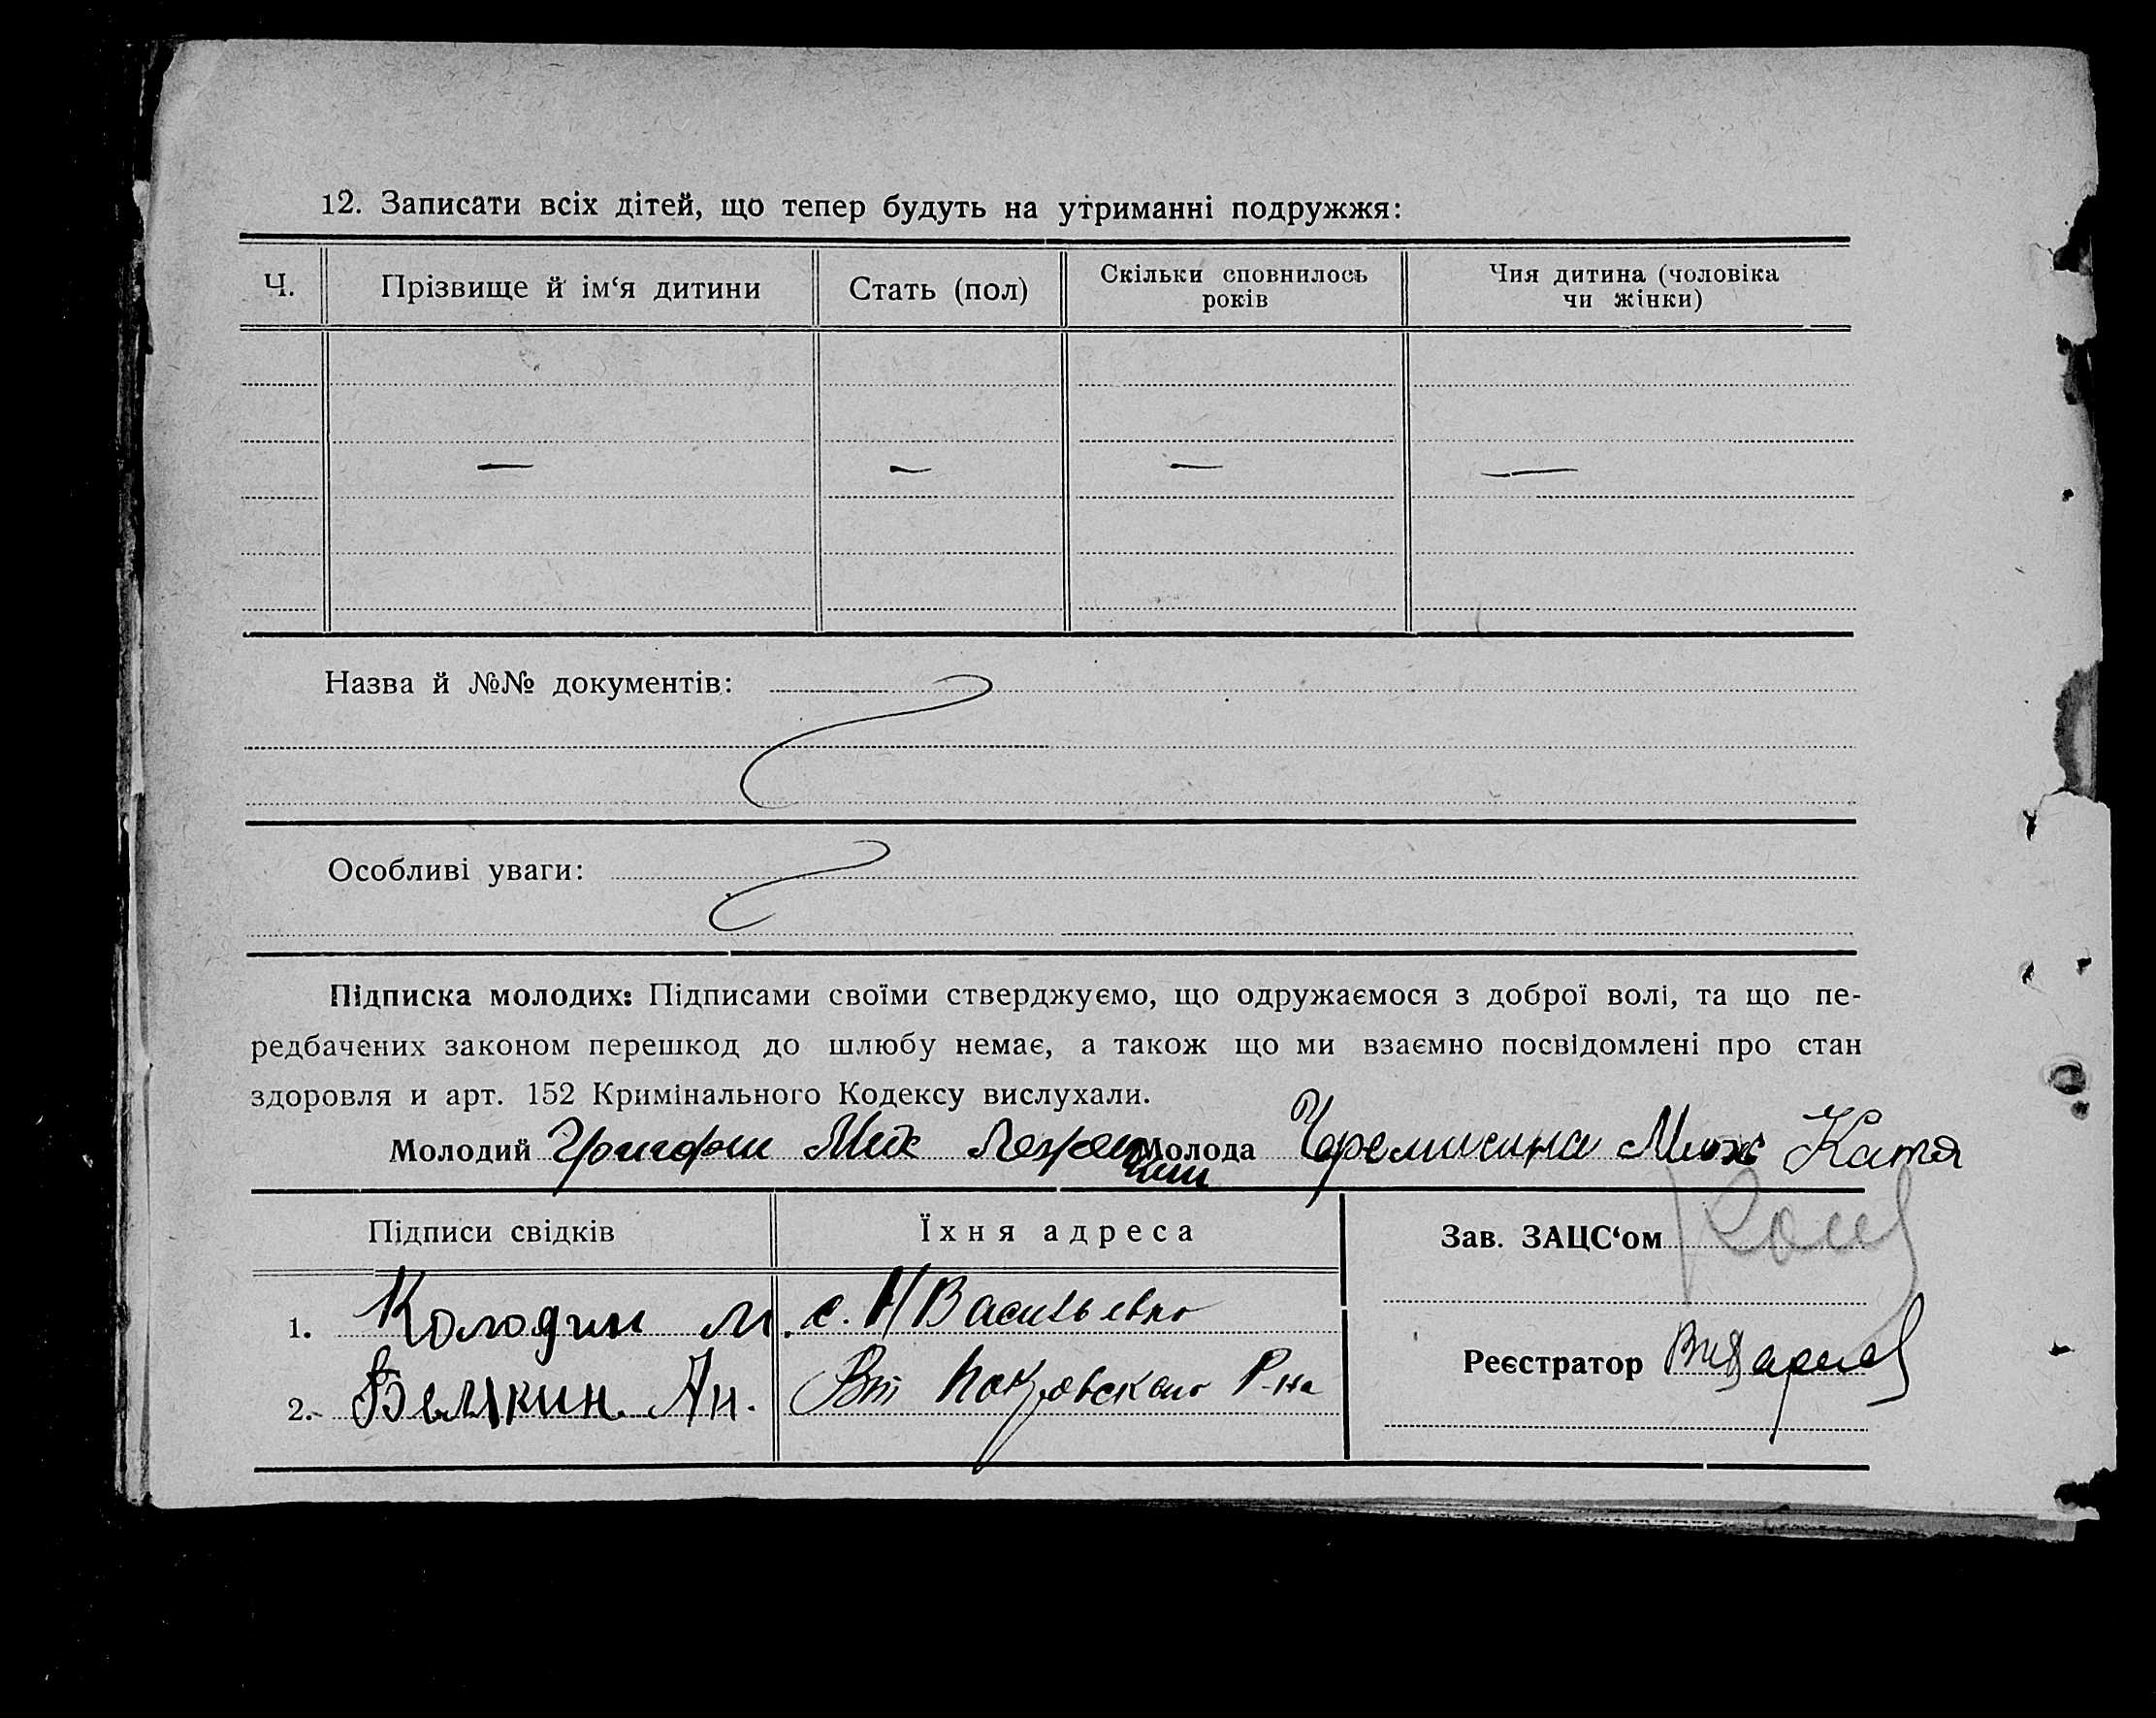 12. Записати всіх дітей, що тепер будуть на утриманні подружжя:
Ч. Прізвище й ім‘я дитини Стать (пол) Скільки сповнилось років Чия дитина (чоловіка чи жінки)
— — — —
Назва й №№ документів:
Особливі уваги:
Підписка молодих: Підписами своїми стверджуємо, що одружаємося з доброї волі, та що пе-
редбачених законом перешкод до шлюбу немає, а також що ми взаємно посвідомлені про стан
здоровля и арт. 152 Кримінального Кодексу вислухали.
Молодий Молода Катя
Підписи свідків Їхня адреса Зав. ЗАЦС‘ом
1. Колодин М. с. Н Васильевко
Реєстратор
2. Белкин Ан. Покровского Р-на